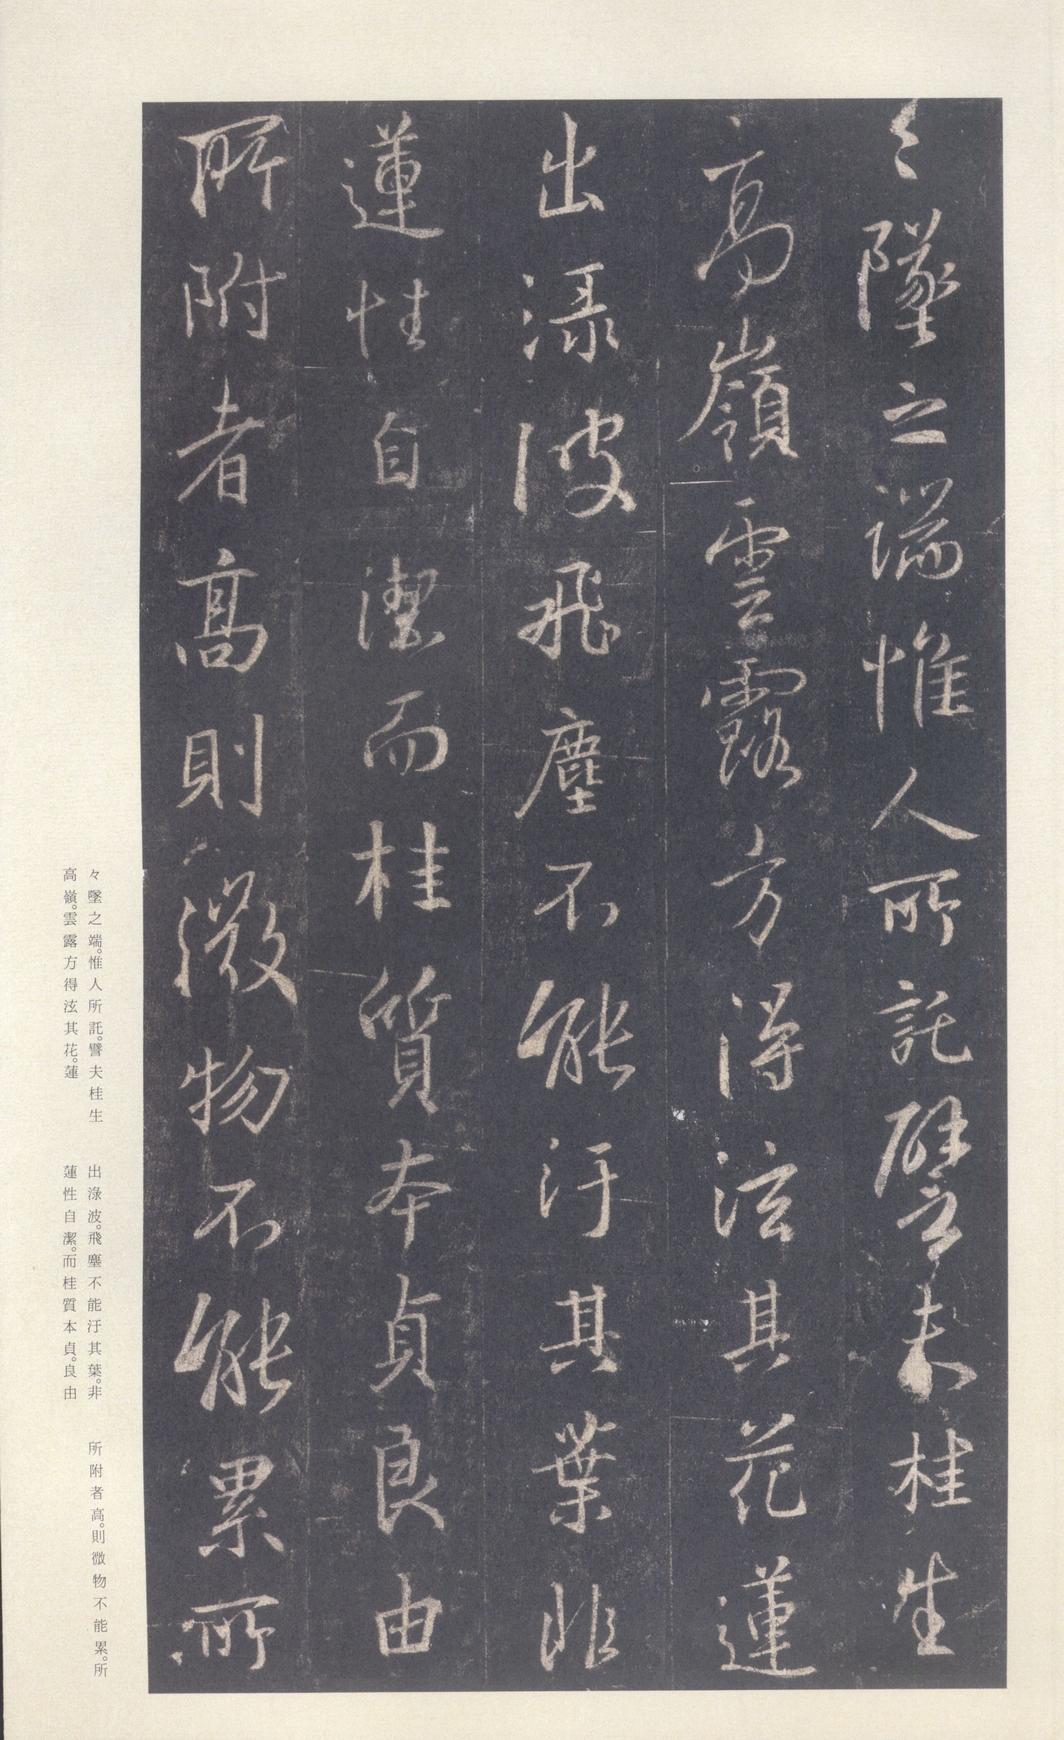 々墜之端惟人所託譬夫桂生
高嶺雲露方得泫其花蓮
出渌波飛塵不能汙其葉非
蓮性自潔而桂質本貞良由
所附者高則微物不能累所
々墜之端。惟人所託。譬夫桂生
高嶺。雲露方得泫其花。蓮
出渌波。飛塵不能汙其葉。非
蓮性自潔。而桂質本貞。良由
所附者高。則微物不能累。所